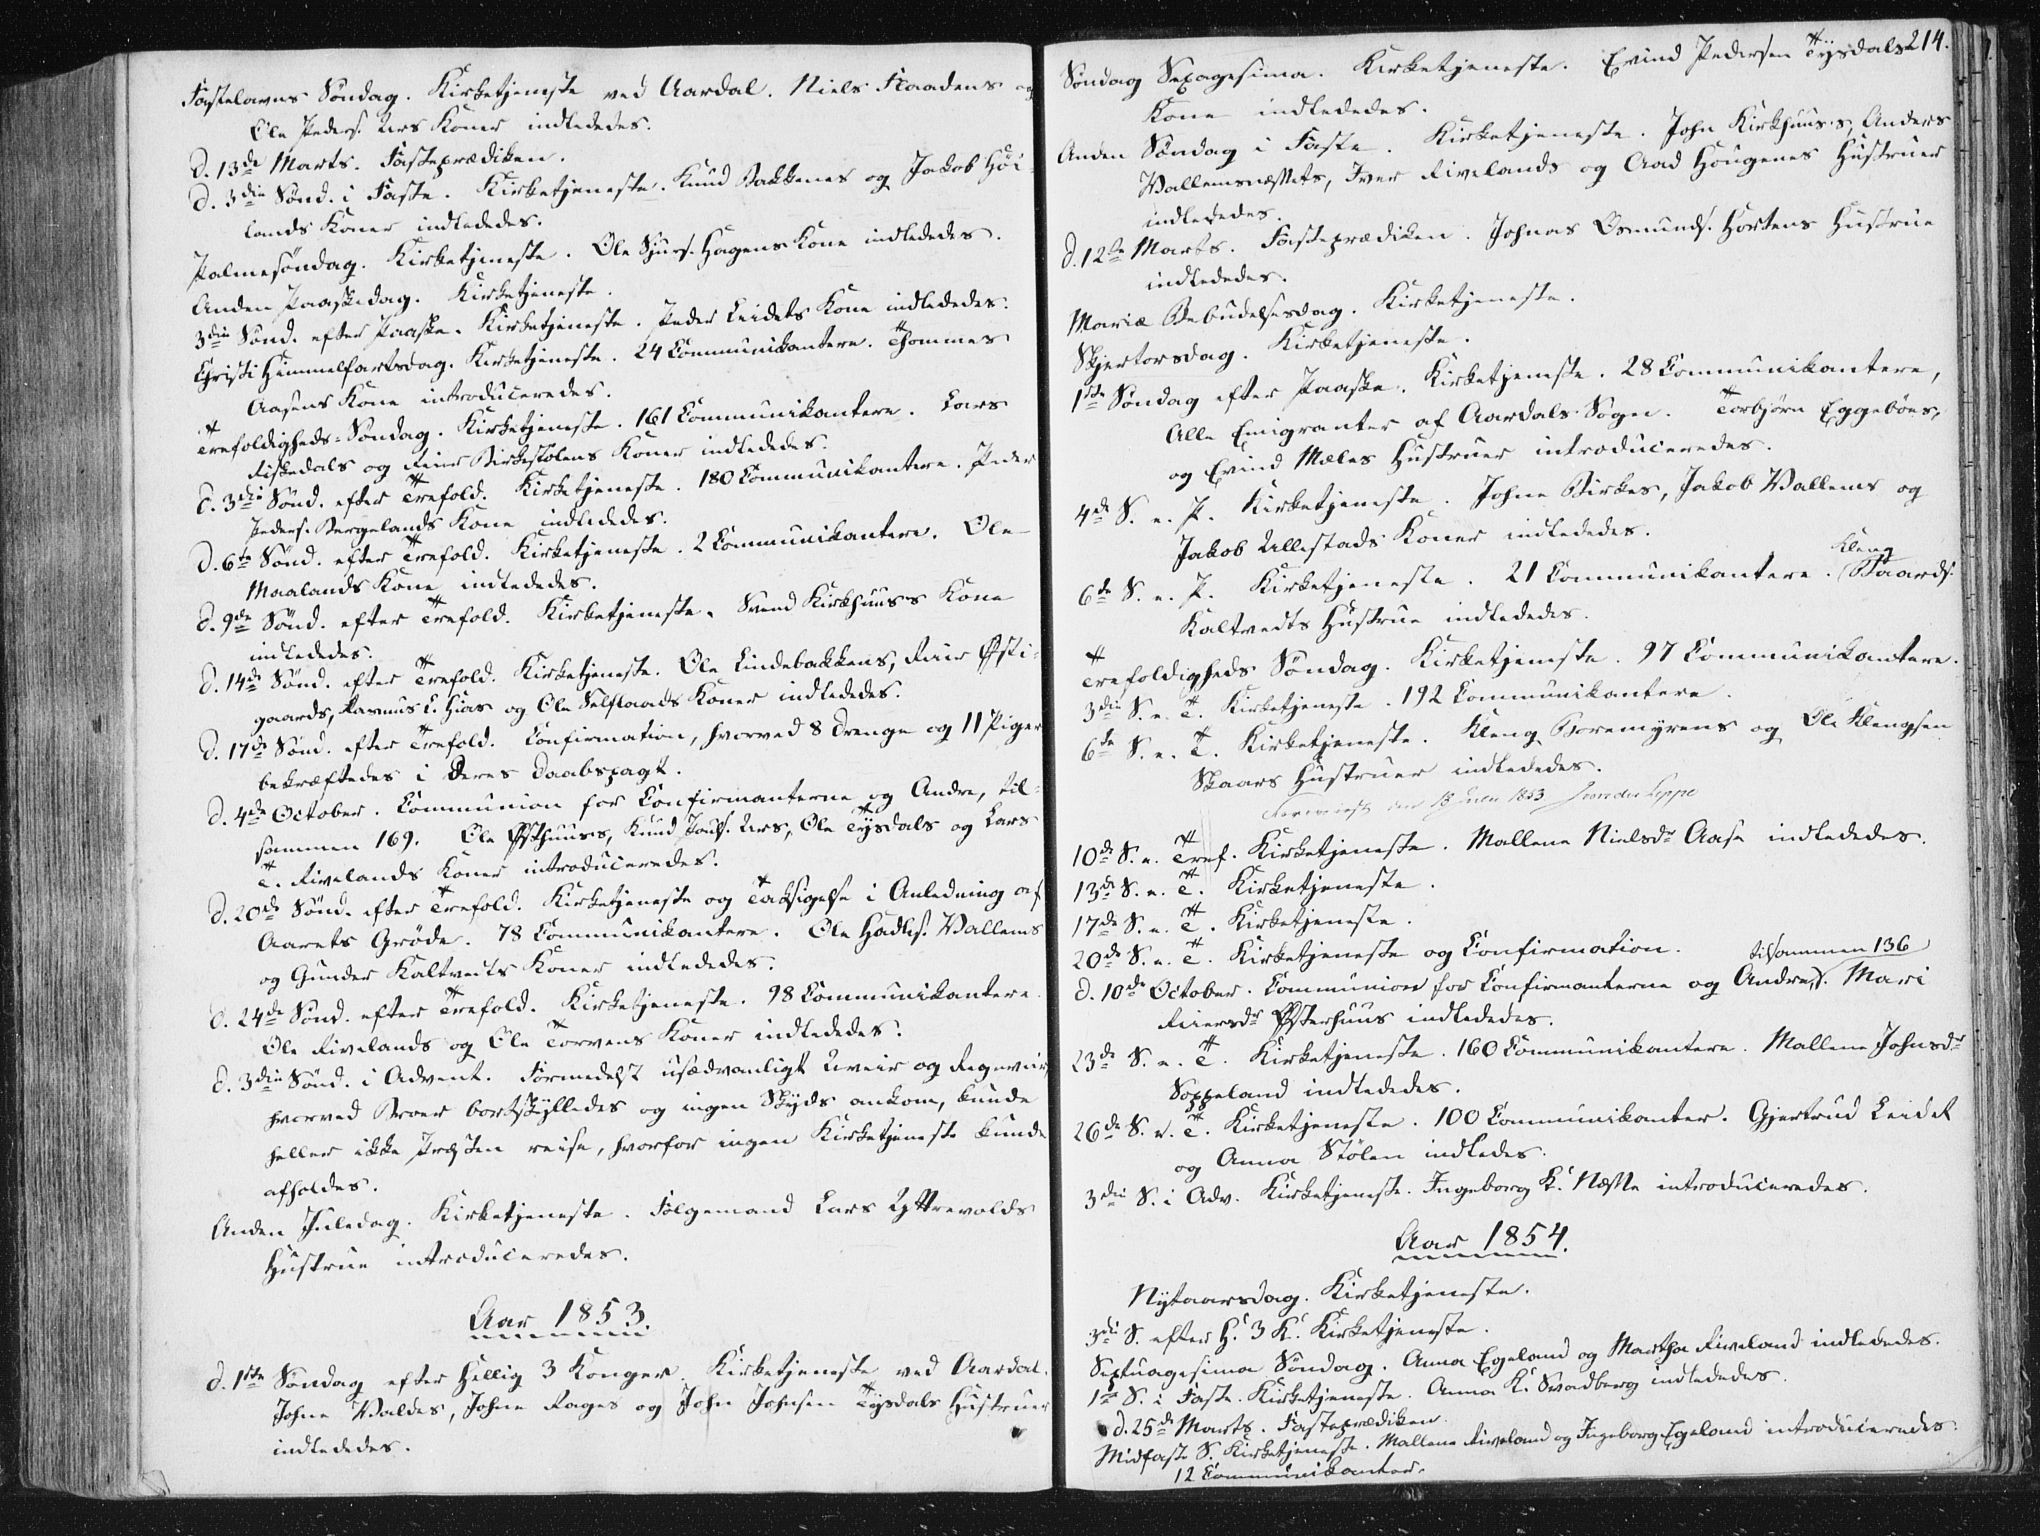 Fastelavns Söndag. Kirketjeneste ved Aardal. Niels Staadens og
Ole Peders. Urs Koner indlededes.
D. 13de Marts. Fasteprædiken.
D. 3die Sönd. i Faste. Kirketjeneste. Knud Bakkenes og Jakob Höi-
lands Koner indlededes.
Palmesöndag. Kirketjeneste. Ole Sjurs. Hagens Kone indlededes.
Anden Paaskedag. Kirketjeneste.
3die Sönd. efter Paaske. Kirketjeneste. Peder Leidets Kone indlededes.
Christi Himmelfartsdag. Kirketjeneste. 24 Communikantere. Thommes
Aasens Kone introduceredes.
Trefoldigheds-Söndag. Kirketjeneste. 161 Communikantere. Lars
Riskedals og Reier Birkestölens Koner indlededes.
D. 3die Sönd. efter Trefold. Kirketjeneste. 180 Communikantere. Peder
Peders. Bergelands Kone indlededes.
D. 6te Sönd. efter Trefold. Kirketjeneste. 2 Communikantere. Ole
Maalands Kone indlededes.
D. 9de Sönd. efter Trefold. Kirketjeneste. Svend Kirkhuus's Kone
indlededes.
D. 14de Sönd. efter Trefold. Kirketjeneste. Ole Lindebakkens, Reier Østi-
gaards, Rasmus L. Hias og Ole Selstaads Koner indlededes.
D. 17de Sönd. efter Trefold. Confirmation, hvorved 8 Drenge og 11 Piger
bekræftedes i deres Daabspagt.
D. 4de October. Communion for Confirmanterne og Andre, til-
sammen 169. Ole Østhuus's, Knud Urs, Ole Tysdals og Lars
T. Rivelands Koner introduceredes.
D. 20de Sönd. efter Trefold. Kirketjeneste og Taksigelse i Anledning af
Aarets Gröde. 78 Communikantere. Ole Hadles. Vallems
og Gunder Kaltvedts Koner indlededes.
D. 24de Sönd. efter Trefold. Kirketjeneste. 98 Communikantere.
Ole Rivelands og Ole Torvens Koner indlededes.
D. 3die Sönd. i Advent. Formedelst usædvanligt Uveir og Regnveir,
hvorved Broer bortskylledes og ingen Skyds ankom, kunde
heller ikke Præsten reise, hvorfor ingen Kirketjeneste kunde
afholdes.
Anden Juledag. Kirketjeneste. Fölgemand Lars Yttrevolds
Hustrue introduceredes.
Aar 1853.
D. 1ste Söndag efter Hellig 3 Konger. Kirketjeneste ved Aardal.
Johne Valdes, Johne Rages og John Johnsen Tysdals Hustruer
indlededes.
214.
Söndag Sexagesima. Kirketjeneste. Evind Pedersen Tysdals
Kone indlededes.
Anden Söndag i Faste. Kirketjeneste. John Kirkhuus's, Anders
Vallemsnæssets, Iver Rivelands og Aad Hougenes Hustruer
indlededes.
D. 12te Marts. Fasteprædiken. Johnas Osmunds. Hortens Hustrue
indlededes.
Mariæ Bebudelsesdag. Kirketjeneste.
Skjertorsdag. Kirketjeneste.
1ste Söndag efter Paaske. Kirketjeneste. 28 Communikantere,
Alle Emigranter af Aardals Sogn. Torbjörn Eggeböes,
og Evind Mæles Hustruer introduceredes.
4de S. e. P. Kirketjeneste. Johne Birkes, Jakob Vallems og
Jakob Ullestads Koner indlededes.
6te S. e. P. Kirketjeneste. 21 Communikantere. Kleng Baards.
Kaltvedts Hustrue indlededes.
Trefoldigheds Söndag. Kirketjeneste. 97 Communikantere.
3die S. e. T. Kirketjeneste. 192 Communikantere.
6te S. e. T. Kirketjeneste. Kleng Boremyrens og Ole Klengsen
Skaars Hustruer indlededes.
den 18 1853
10de S. e. Tref. Kirketjeneste. Mallene Nielsdr Aase indlededes.
13de S. e. T. Kirketjeneste.
17de S. e. T. Kirketjeneste.
20de S. e. T. Kirketjeneste og Confirmation.
D. 10de October. Communion for Confirmanterne og Andre, tilsammen 136. Mari
Reiersdr Østerhuus indlededes.
23de S. e. T. Kirketjeneste. 160 Communikantere. Mallene Johnsdr
Soppeland indlededes.
26de S. e. T. Kirketjeneste. 100 Communikanter. Gjertrud Leidet
og Anna Stölen indledes.
3die S. i Adv. Kirketjeneste. Ingeborg K. Næsse introduceredes.
Aar 1854.
Nytaarsdag. Kirketjeneste.
3die S. efter H. 3 K. Kirketjeneste.
Septuagesima Söndag. Anna Egeland og Martha Riveland indlededes.
1ste S. i Faste. Kirketjeneste. Anna K. Svadberg indlededes.
D. 25de Marts. Fasteprædiken.
Midfaste S. Kirketjeneste. Mallene Riveland og Ingeborg Egeland introduceredes.
12 Communikanter.